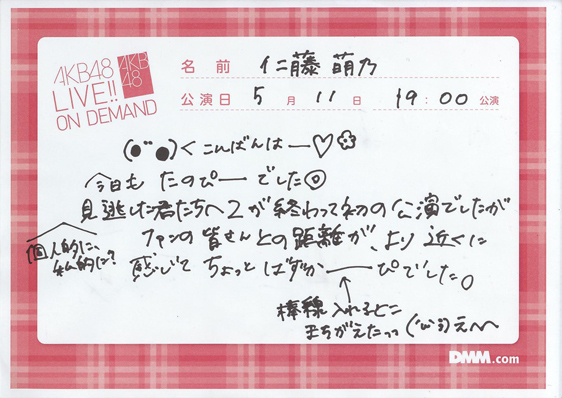 AKB48
LIVE!!
ON DEMAND
AKB
48
名前 仁藤萌乃
公演日 5月11日 19:00公演
(●゛●)くこんばんはー♡
今日も たのぴーでした◎
見逃した君たちへ2が終わって初の公演でしたが
ファンの皆さんとの距離が、より近くに
個人的に、
私的に?
感じて ちょっとはずかーーぴでした。
↑
棒線入れるとこ
まちがえたっっ(´ω`;)えへへ
DMM.com